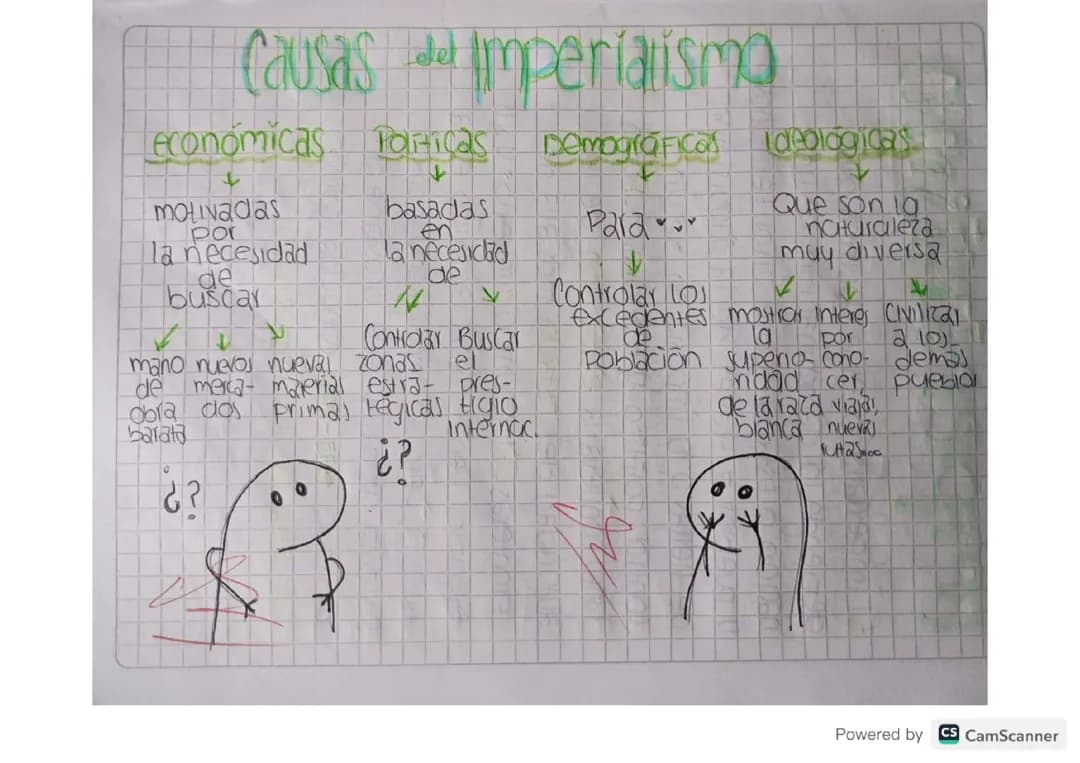 Causas del Imperialismo
económicas Políticas Demográficas Ideológicas
motivadas
por
la necesidad
de
buscar
mano nuevos nuevas
de merca- materias
obra dos primas
barata
basadas
en
la necesidad
de
Controlar Buscar
zonas el
estra- pres-
tégicas tigio
internac.
Para
Controlar los
excedentes
de
Población
Que son la
naturaleza
muy diversa
mostrar interes Civilizar
la por a los
superio- cono- demás
ridad cer, pueblos
de la raza viajar,
blanca nuevas
rutas...
¿?
¿?
Powered by CS CamScanner